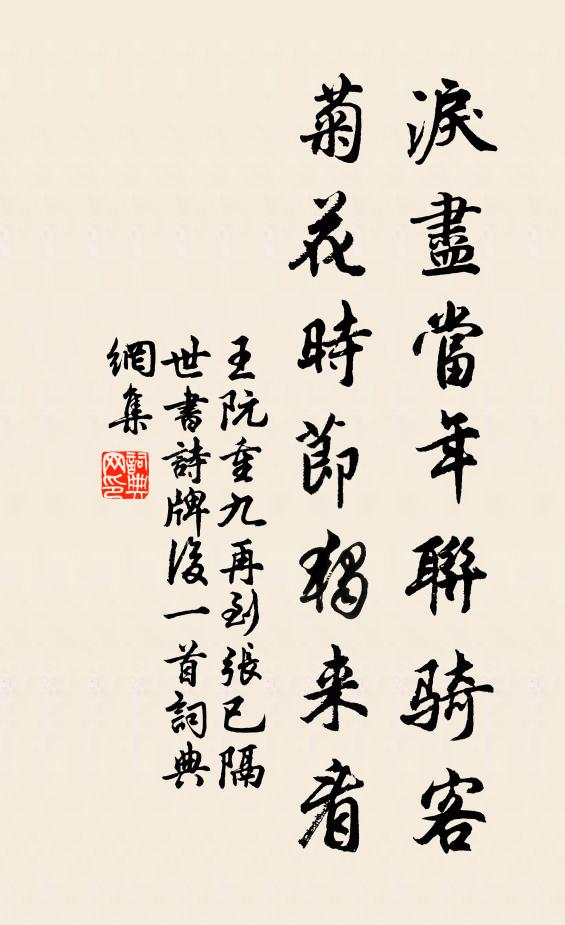 淚盡當年聯騎客
菊花時節獨来看
王阮重九再到張已隔
世書詩牌後一首詞典
網集
詞典
网印